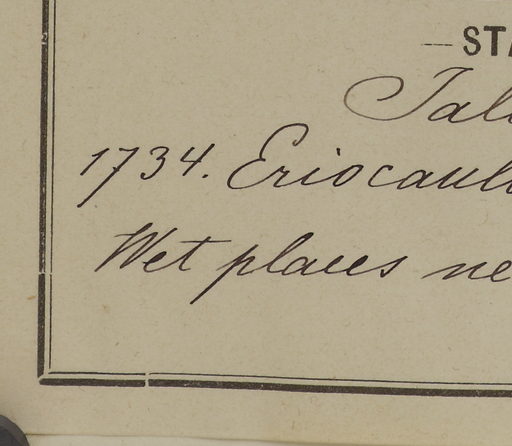 — STA
Tal
1734. Eriocaul
Wet places ne